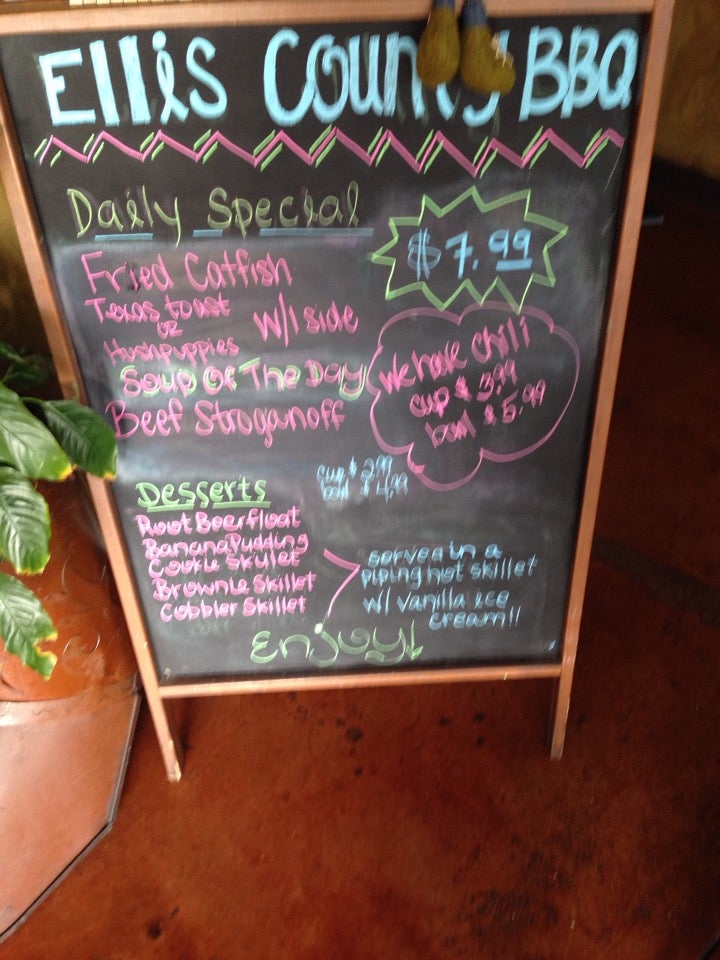 Ellis County BBQ
Daily Special
$7.99
Fried Catfish
Texas toast
or
Hushpuppies
w/1 side
We have Chili
cup $3.99
bowl $5.99
Soup Of The Day
Beef Stroganoff
cup $2.99
bowl $4.99
Desserts
Root Beer float
Banana Pudding
Cookie Skylet
Brownie Skillet
Cobbler Skillet
served in a
piping hot skillet
w/ vanilla ice
cream!!
Enjoy!